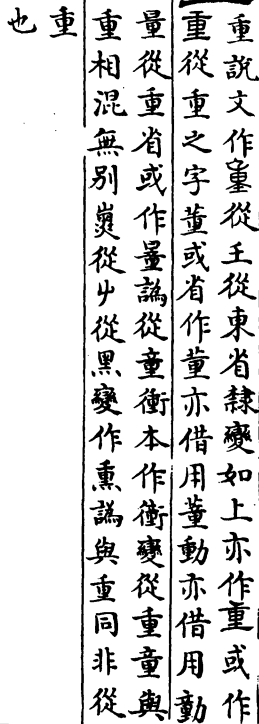 重說文作從王從東省隸變如上亦作重或作
重從重之字董或省作董亦借用董動亦借用勭
量從重省或作量譌從童衝本作衝變從重童與
重相混無別從屮從黑變作熏譌與重同非從
重
也